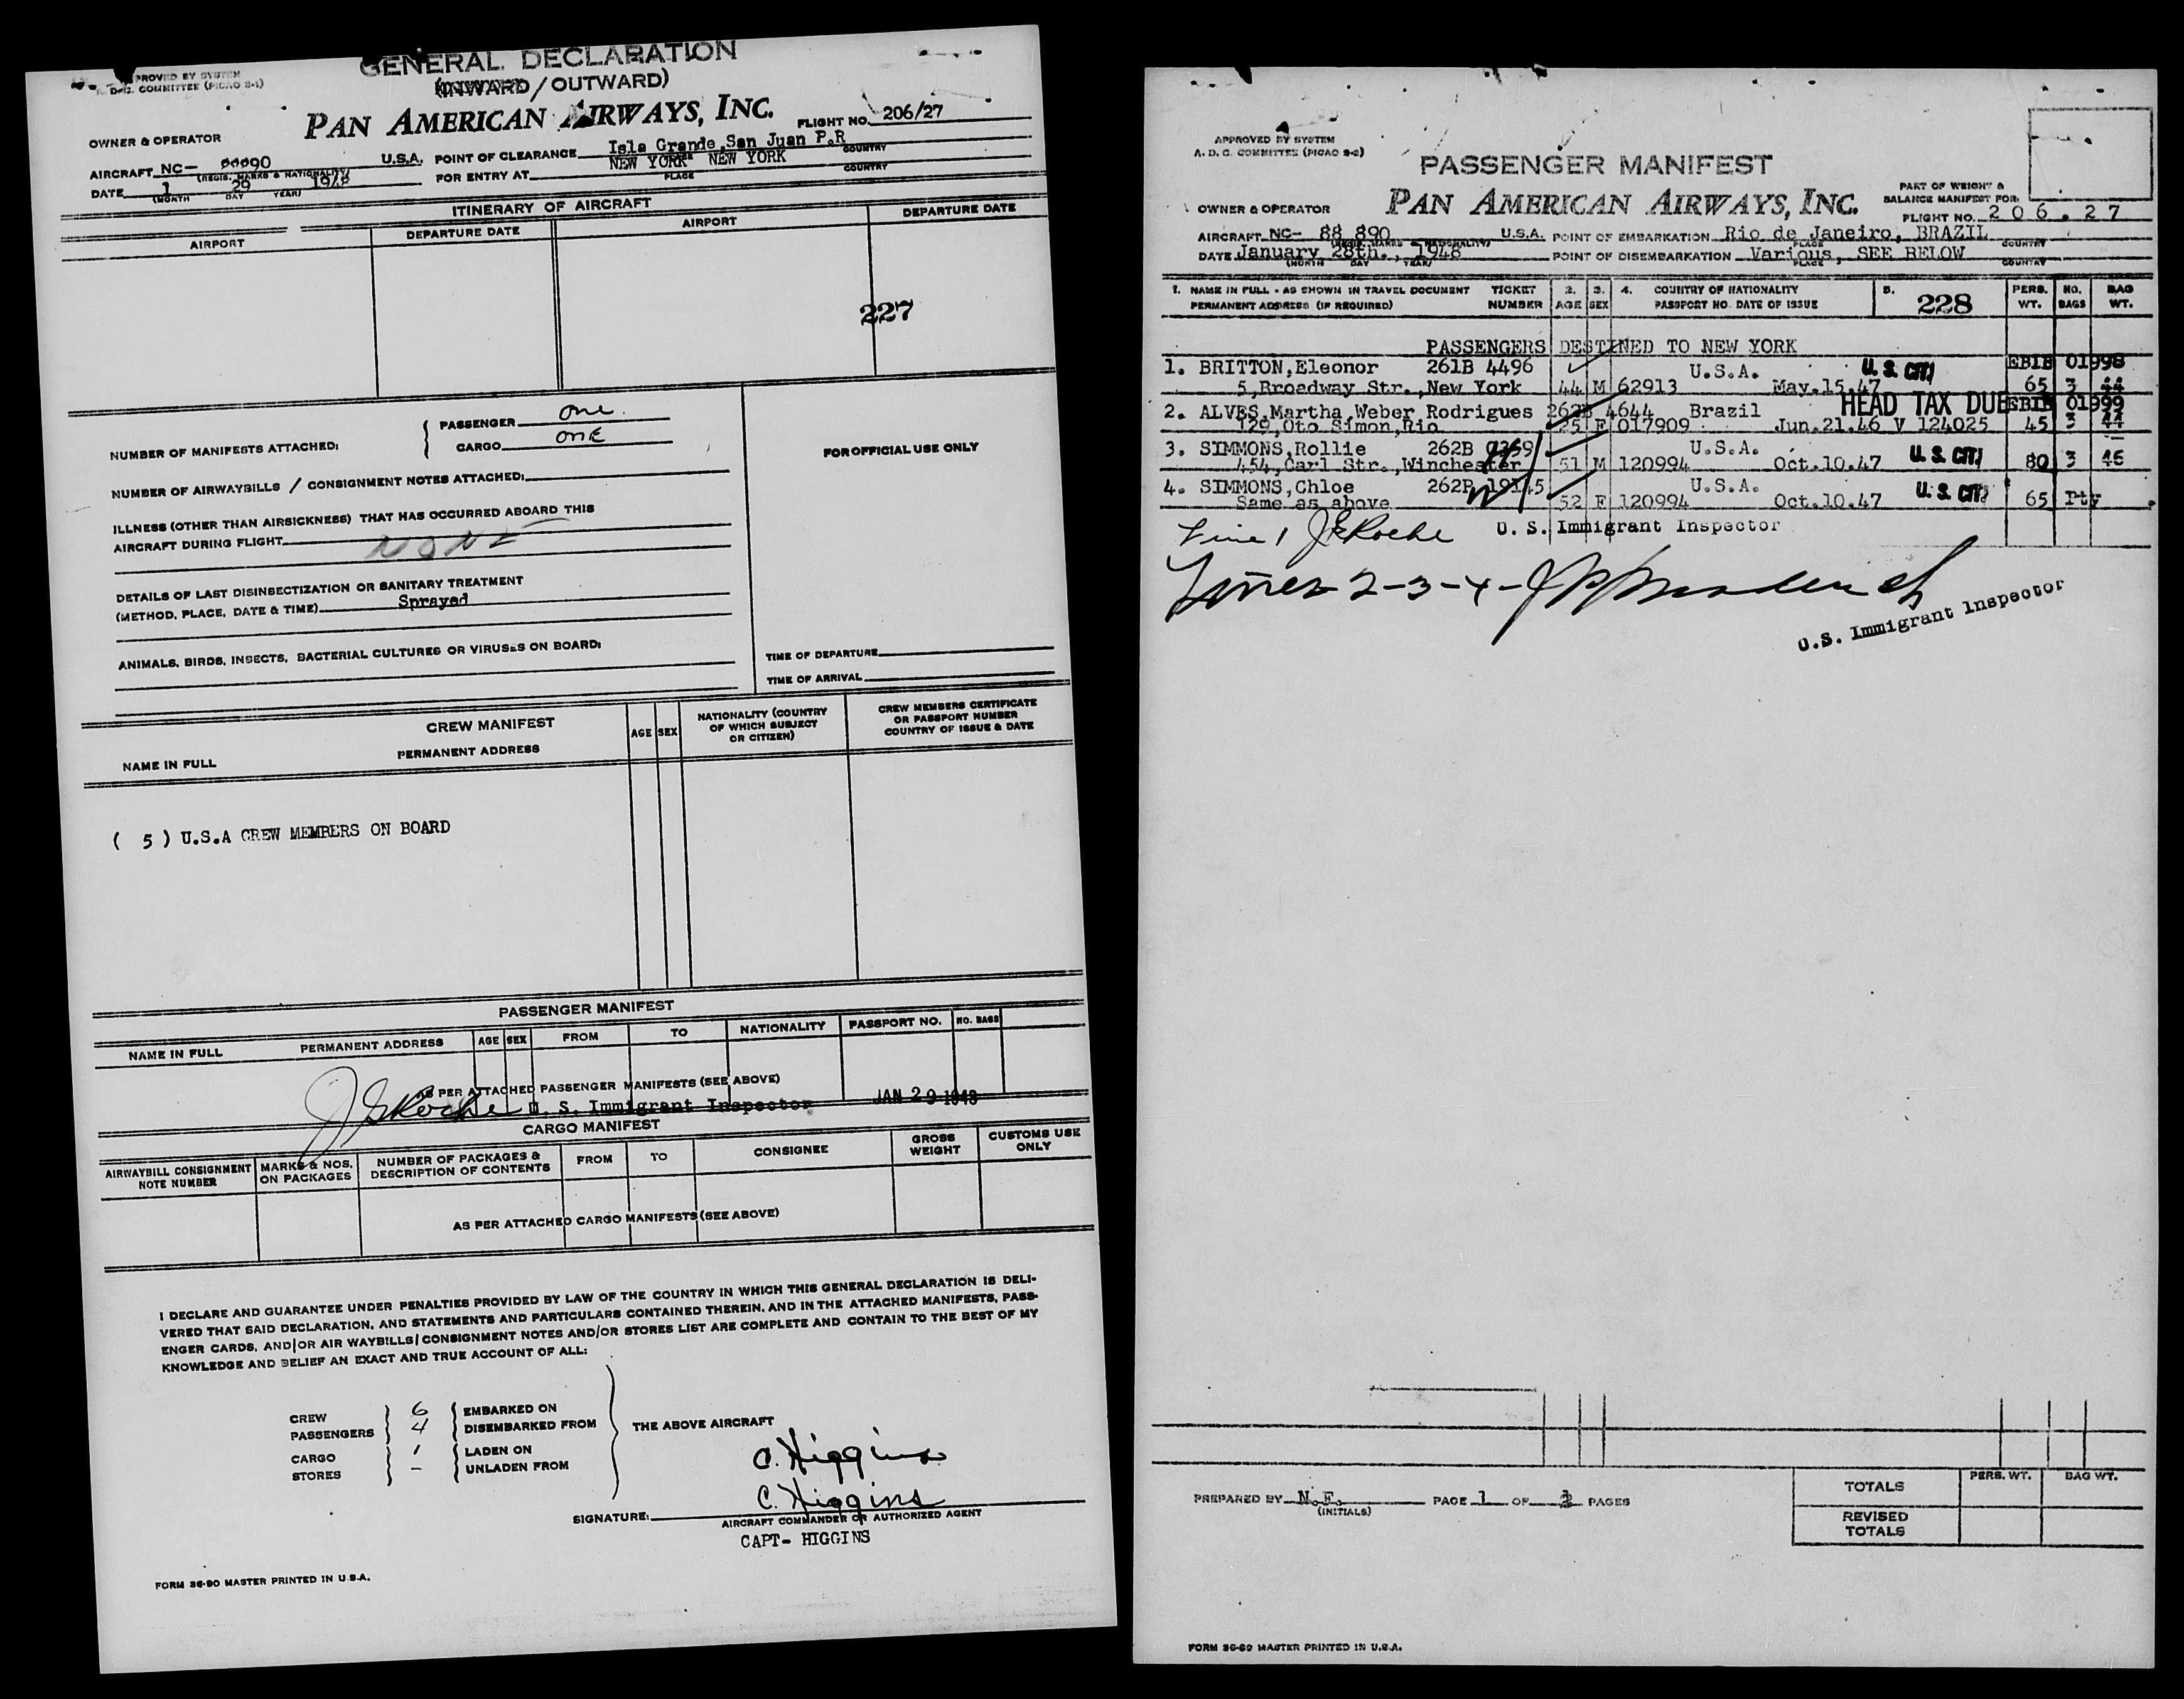 GENERAL DECLARATION
(INWARD/OUTWARD)
PROVED BY SYSTEM
COMMITTEE (PICAO S-1)
PAN AMERICAN AIRWAYS, INC.
FLIGHT NO. 206/27
OWNER & OPERATOR
AIRCRAFT NC- 88890 U.S.A. POINT OF CLEARANCE Isla Grande, San Juan P.R COUNTRY
(REGIS. MARKS & NATIONALITY)
DATE 1 29 1948 FOR ENTRY AT NEW YORK NEW YORK
(MONTH DAY YEAR) PLACE COUNTRY
ITINERARY OF AIRCRAFT
AIRPORT DEPARTURE DATE AIRPORT DEPARTURE DATE
227
NUMBER OF MANIFESTS ATTACHED: PASSENGER one
CARGO ONE
FOR OFFICIAL USE ONLY
NUMBER OF AIRWAYBILLS / CONSIGNMENT NOTES ATTACHED:
ILLNESS (OTHER THAN AIRSICKNESS) THAT HAS OCCURRED ABOARD THIS
AIRCRAFT DURING FLIGHT NONE
DETAILS OF LAST DISINSECTIZATION OR SANITARY TREATMENT
(METHOD, PLACE, DATE & TIME) Sprayed
ANIMALS, BIRDS, INSECTS, BACTERIAL CULTURES OR VIRUSES ON BOARD:
TIME OF DEPARTURE
TIME OF ARRIVAL
CREW MANIFEST
NAME IN FULL PERMANENT ADDRESS AGE SEX
NATIONALITY (COUNTRY
OF WHICH SUBJECT
OR CITIZEN)
CREW MEMBERS CERTIFICATE
OR PASSPORT NUMBER
COUNTRY OF ISSUE & DATE
( 5 ) U.S.A CREW MEMBERS ON BOARD
PASSENGER MANIFEST
NAME IN FULL PERMANENT ADDRESS AGE SEX FROM TO NATIONALITY PASSPORT NO. NO. BAGS
AS PER ATTACHED PASSENGER MANIFESTS (SEE ABOVE)
J E Roche U. S. Immigrant Inspector JAN 29 1948
CARGO MANIFEST
AIRWAYBILL CONSIGNMENT
NOTE NUMBER
MARKS & NOS.
ON PACKAGES
NUMBER OF PACKAGES &
DESCRIPTION OF CONTENTS
FROM TO CONSIGNEE
GROSS
WEIGHT
CUSTOMS USE
ONLY
AS PER ATTACHED CARGO MANIFESTS (SEE ABOVE)
I DECLARE AND GUARANTEE UNDER PENALTIES PROVIDED BY LAW OF THE COUNTRY IN WHICH THIS GENERAL DECLARATION IS DELI-
VERED THAT SAID DECLARATION, AND STATEMENTS AND PARTICULARS CONTAINED THEREIN, AND IN THE ATTACHED MANIFESTS, PASS-
ENGER CARDS, AND/OR AIR WAYBILLS/CONSIGNMENT NOTES AND/OR STORES LIST ARE COMPLETE AND CONTAIN TO THE BEST OF MY
KNOWLEDGE AND BELIEF AN EXACT AND TRUE ACCOUNT OF ALL:
CREW 6 EMBARKED ON
PASSENGERS 4 DISEMBARKED FROM THE ABOVE AIRCRAFT
CARGO 1 LADEN ON
STORES - UNLADEN FROM
C. Higgins
C. Higgins
SIGNATURE:
AIRCRAFT COMMANDER OR AUTHORIZED AGENT
CAPT- HIGGINS
FORM 36-90 MASTER PRINTED IN U.S.A.
APPROVED BY SYSTEM
A. D. C. COMMITTEE (PICAO S-2)
PASSENGER MANIFEST
PAN AMERICAN AIRWAYS, INC.
PART OF WEIGHT &
BALANCE MANIFEST FOR:
FLIGHT NO. 206.27
OWNER & OPERATOR
AIRCRAFT NC- 88 890 U.S.A. POINT OF EMBARKATION Rio de Janeiro, BRAZIL
(REGIS. MARKS & NATIONALITY) PLACE COUNTRY
DATE January 28th., 1948 POINT OF DISEMBARKATION Various, SEE BELOW
(MONTH DAY YEAR) PLACE COUNTRY
1. NAME IN FULL - AS SHOWN IN TRAVEL DOCUMENT TICKET 2. 3. 4. COUNTRY OF NATIONALITY 5. 228 PERS. NO. BAG
PERMANENT ADDRESS (IF REQUIRED) NUMBER AGE SEX PASSPORT NO. DATE OF ISSUE WT. BAGS WT.
PASSENGERS DESTINED TO NEW YORK
1. BRITTON, Eleonor 261B 4496 U.S.A. U. S. CIT. EBIB 01998
5, Broadway Str., New York 44 M 62913 May.15.47 65 3 44
2. ALVES, Martha Weber Rodrigues 262B 4644 Brazil HEAD TAX DUE EBIB 01999
129, Oto Simon, Rio 25 F 017909 Jun.21.46 V 124025 45 3 44
3. SIMMONS, Rollie 262B U.S.A. U. S. CIT.
454, Carl Str., Winchester 51 M 120994 Oct.10.47 80 3 46
4. SIMMONS, Chloe 262B U.S.A. U. S. CIT.
Same as above 52 F 120994 Oct.10.47 65 Pty
Line 1 J E Roche U. S. Immigrant Inspector
Lines 2-3-4-
U.S. Immigrant Inspector
PREPARED BY N.F. PAGE 1 OF PAGES
(INITIALS)
PERS. WT. BAG WT.
TOTALS
REVISED
TOTALS
FORM 36-69 MASTER PRINTED IN U.S.A.